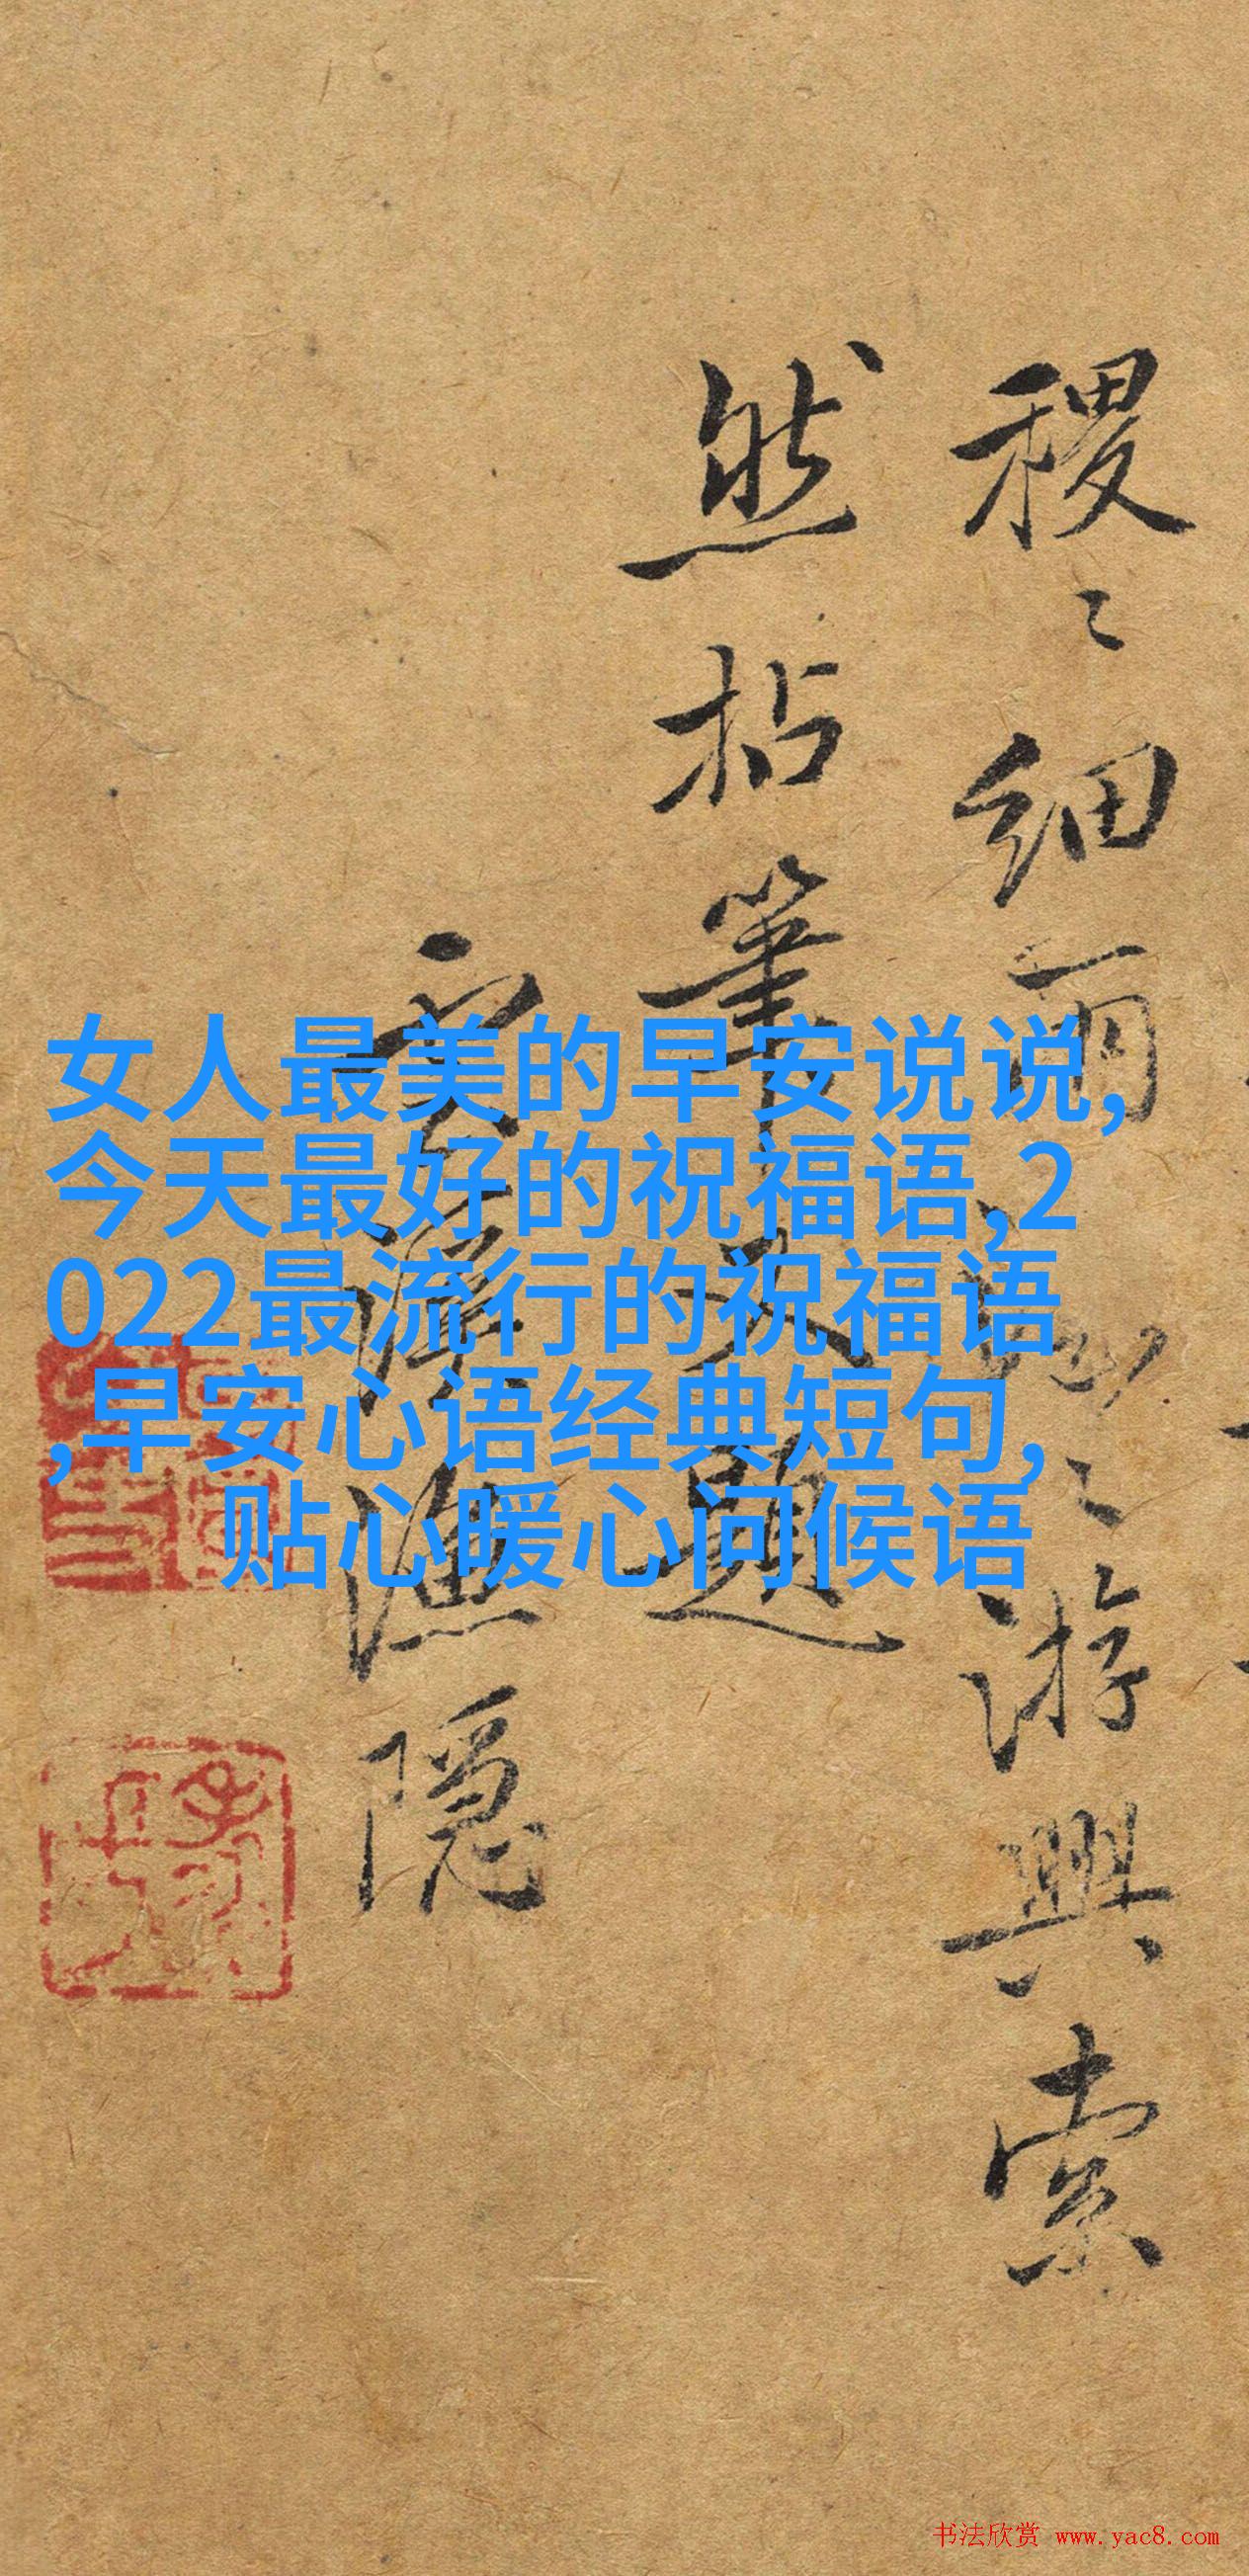 女人最美的早安说说,
今天最好的祝福语,2
022最流行的祝福语
,早安心语经典短句,
贴心暖心问候语
稷〻细雨
〻游興索
然拈筆又題
漁隠
书法欣赏 www.yac8.com